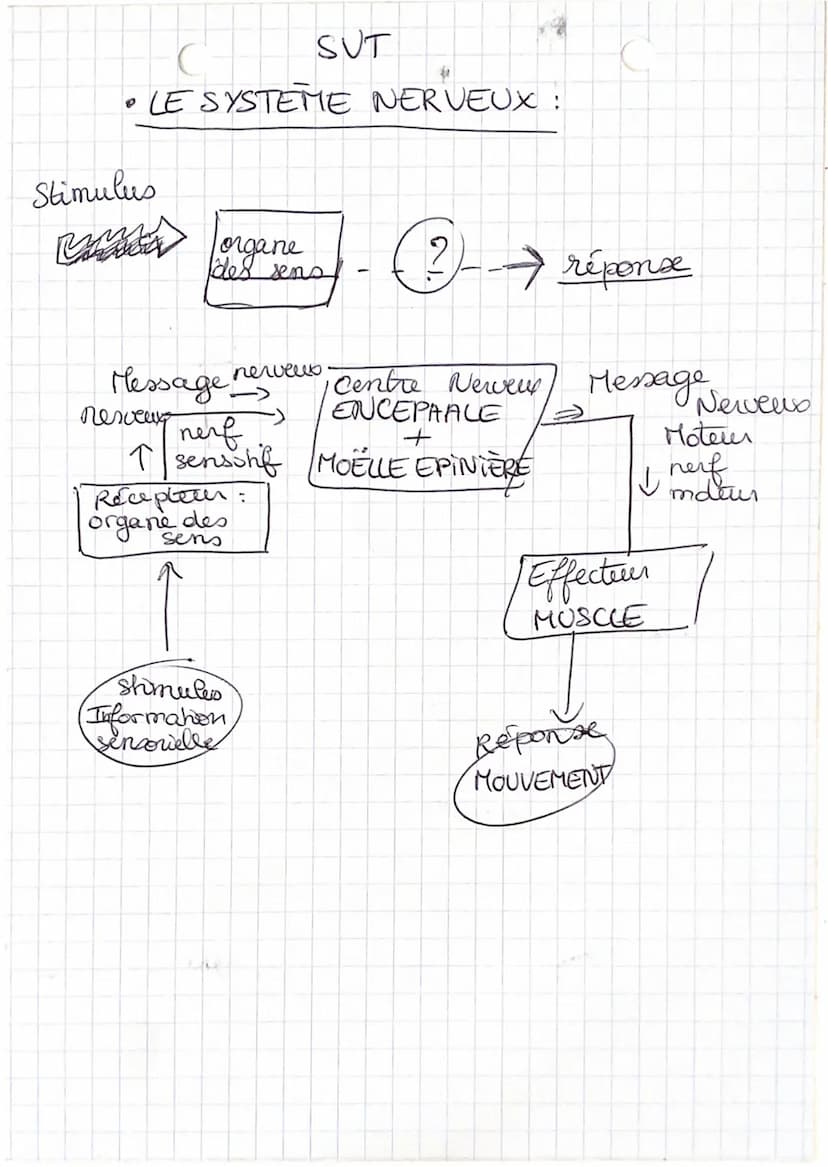 SVT
• LE SYSTÈME NERVEUX :
Stimulus
organe
des sens
?
réponse
Message nerveux
nerveux
nerf
sensitif
Récepteur :
organe des
sens
Stimulus
Information
sensorielle
Centre Nerveux
ENCEPAALE
+
MOËLLE EPINIÈRE
Message
Nerveux
Moteur
nerf
moteur
Effecteur
MUSCLE
Réponse
MOUVEMENT